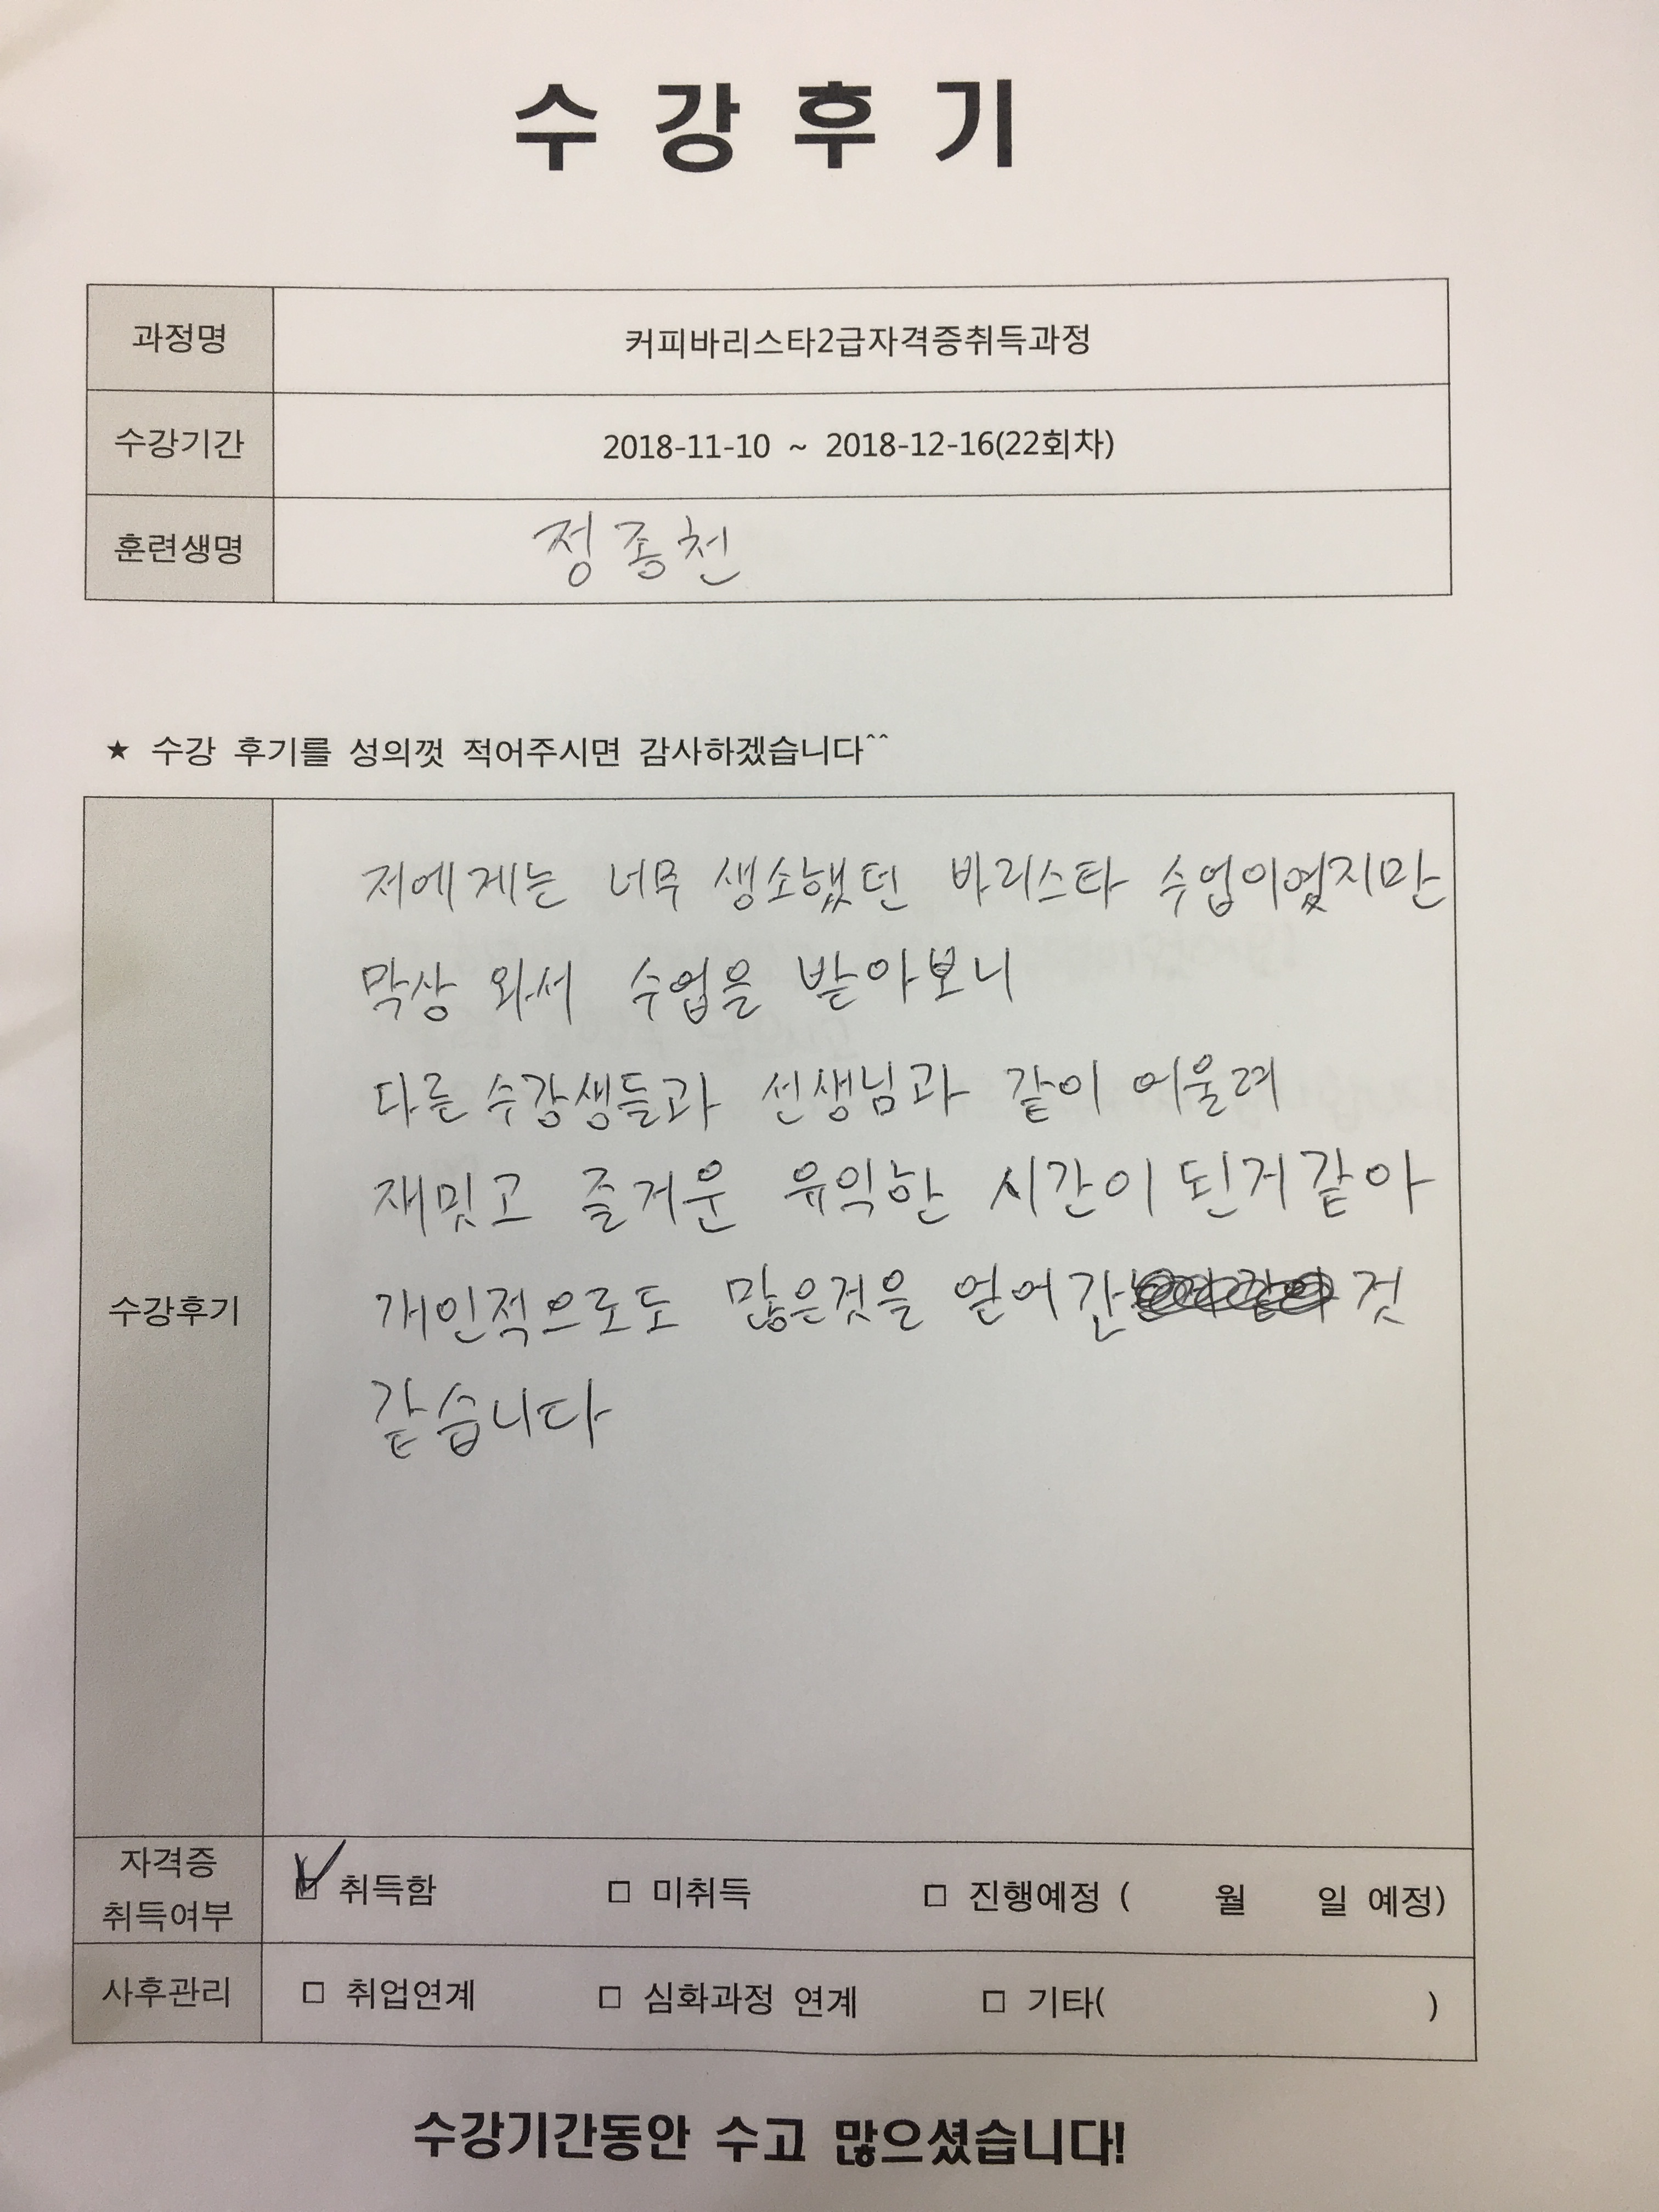 수강후기
과정명 커피바리스타2급자격증취득과정
수강기간 2018-11-10 ~ 2018-12-16(22회차)
훈련생명 정종천
★ 수강 후기를 성의껏 적어주시면 감사하겠습니다^^
저에게는 너무 생소했던 바리스타 수업이였지만
막상 와서 수업을 받아보니
다른 수강생들과 선생님과 같이 어울려
재밌고 즐거운 유익한 시간이 된거같아
수강후기
개인적으로도 많은것을 얻어간 것
같습니다
자격증
취득여부
☑ 취득함 □ 미취득 □ 진행예정 ( 월 일 예정)
사후관리 □ 취업연계 □ 심화과정 연계 □ 기타( )
수강기간동안 수고 많으셨습니다!